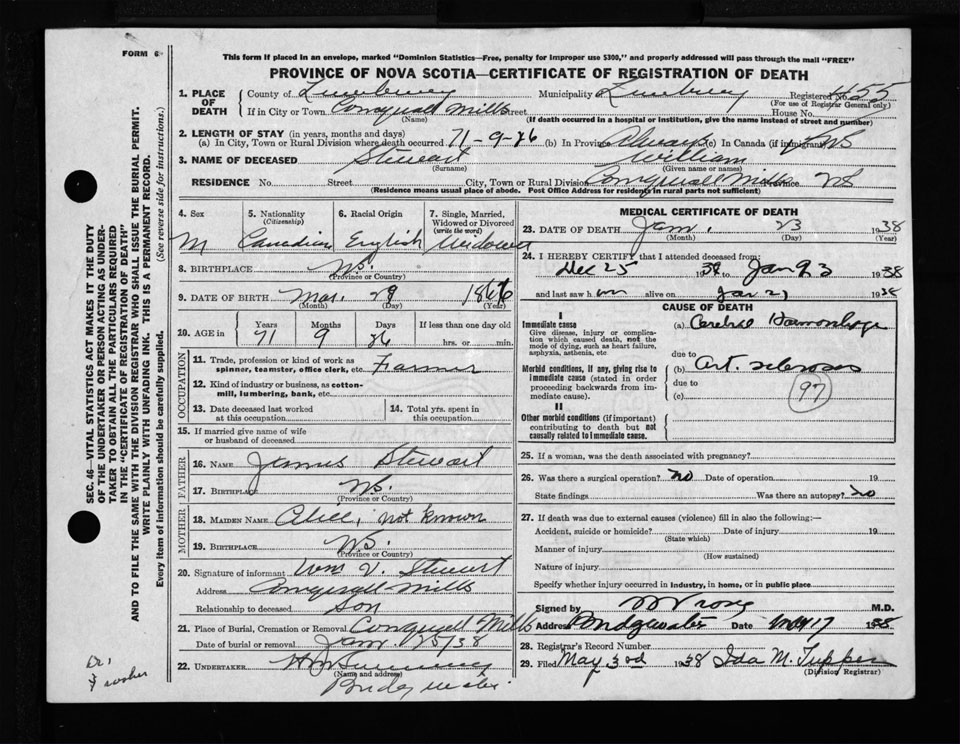 FORM 6
This form if placed in an envelope, marked "Dominion Statistics—Free, penalty for improper use $300," and properly addressed will pass through the mail "FREE"
PROVINCE OF NOVA SCOTIA—CERTIFICATE OF REGISTRATION OF DEATH
1. PLACE OF DEATH
County of Lunenburg Municipality Lunenburg Registered No. 455
(For use of Registrar General only)
If in City or Town Conquerall Mills Street House No.
(Name) (If death occurred in a hospital or institution, give the name instead of street and number)
2. LENGTH OF STAY (in years, months and days)
(a) In City, Town or Rural Division where death occurred 71-9-26 (b) In Province Always (c) In Canada (if immigrant) NS
3. NAME OF DECEASED Stewart William
(Surname) (Given name or names)
RESIDENCE No. Street City, Town or Rural Division Conquerall Mills Province NS
(Residence means usual place of abode. Post Office Address for residents in rural parts not sufficient)
4. Sex 5. Nationality (Citizenship) 6. Racial Origin 7. Single, Married, Widowed or Divorced (write the word)
M Canadian English Widower
8. BIRTHPLACE N.S.
(Province or Country)
9. DATE OF BIRTH Mar. 29 1866
(Month) (Day) (Year)
10. AGE in Years Months Days If less than one day old
71 9 26 hrs. or min.
OCCUPATION
11. Trade, profession or kind of work as spinner, teamster, office clerk, etc. Farmer
12. Kind of industry or business, as cotton-mill, lumbering, bank, etc.
13. Date deceased last worked at this occupation
14. Total yrs. spent in this occupation
15. If married give name of wife or husband of deceased
FATHER
16. NAME James Stewart
17. BIRTHPLACE N.S.
(Province or Country)
MOTHER
18. MAIDEN NAME Alice, not known
19. BIRTHPLACE N.S.
(Province or Country)
20. Signature of informant Wm V. Stewart
Address Conquerall-Mills
Relationship to deceased Son
21. Place of Burial, Cremation or Removal Conquerall Mills
Date of burial or removal Jan 25/38
22. UNDERTAKER
(Name and address)
Bridgewater
MEDICAL CERTIFICATE OF DEATH
23. DATE OF DEATH Jan. 23 1938
(Month) (Day) (Year)
24. I HEREBY CERTIFY that I attended deceased from:
Dec 25 to Jan 23 1938
and last saw him alive on Jan 21 1938
CAUSE OF DEATH
I
Immediate cause
Give disease, injury or complication which caused death, not the mode of dying, such as heart failure, asphyxia, asthenia, etc
(a) Cerebral Haemorrhage
due to
Morbid conditions, if any, giving rise to immediate cause (stated in order proceeding backwards from immediate cause).
(b) Art. sclerosis
due to
(c) 97
II
Other morbid conditions (if important) contributing to death but not causally related to immediate cause.
25. If a woman, was the death associated with pregnancy?
26. Was there a surgical operation? no Date of operation 19
State findings Was there an autopsy? no
27. If death was due to external causes (violence) fill in also the following:—
Accident, suicide or homicide? Date of injury 19
(State which)
Manner of injury
(How sustained)
Nature of injury
Specify whether injury occurred in industry, in home, or in public place
Signed by M.D.
Address Bridgewater Date 17 1938
28. Registrar's Record Number
29. Filed May 3rd 1938 Ida M. Tupper
(Division Registrar)
SEC. 46—VITAL STATISTICS ACT MAKES IT THE DUTY
OF THE UNDERTAKER OR PERSON ACTING AS UNDER-
TAKER TO OBTAIN ALL THE PARTICULARS REQUIRED
IN THE "CERTIFICATE OF REGISTRATION OF DEATH"
AND TO FILE THE SAME WITH THE DIVISION REGISTRAR WHO SHALL ISSUE THE BURIAL PERMIT.
WRITE PLAINLY WITH UNFADING INK. THIS IS A PERMANENT RECORD.
Every item of information should be carefully supplied. (See reverse side for instructions.)